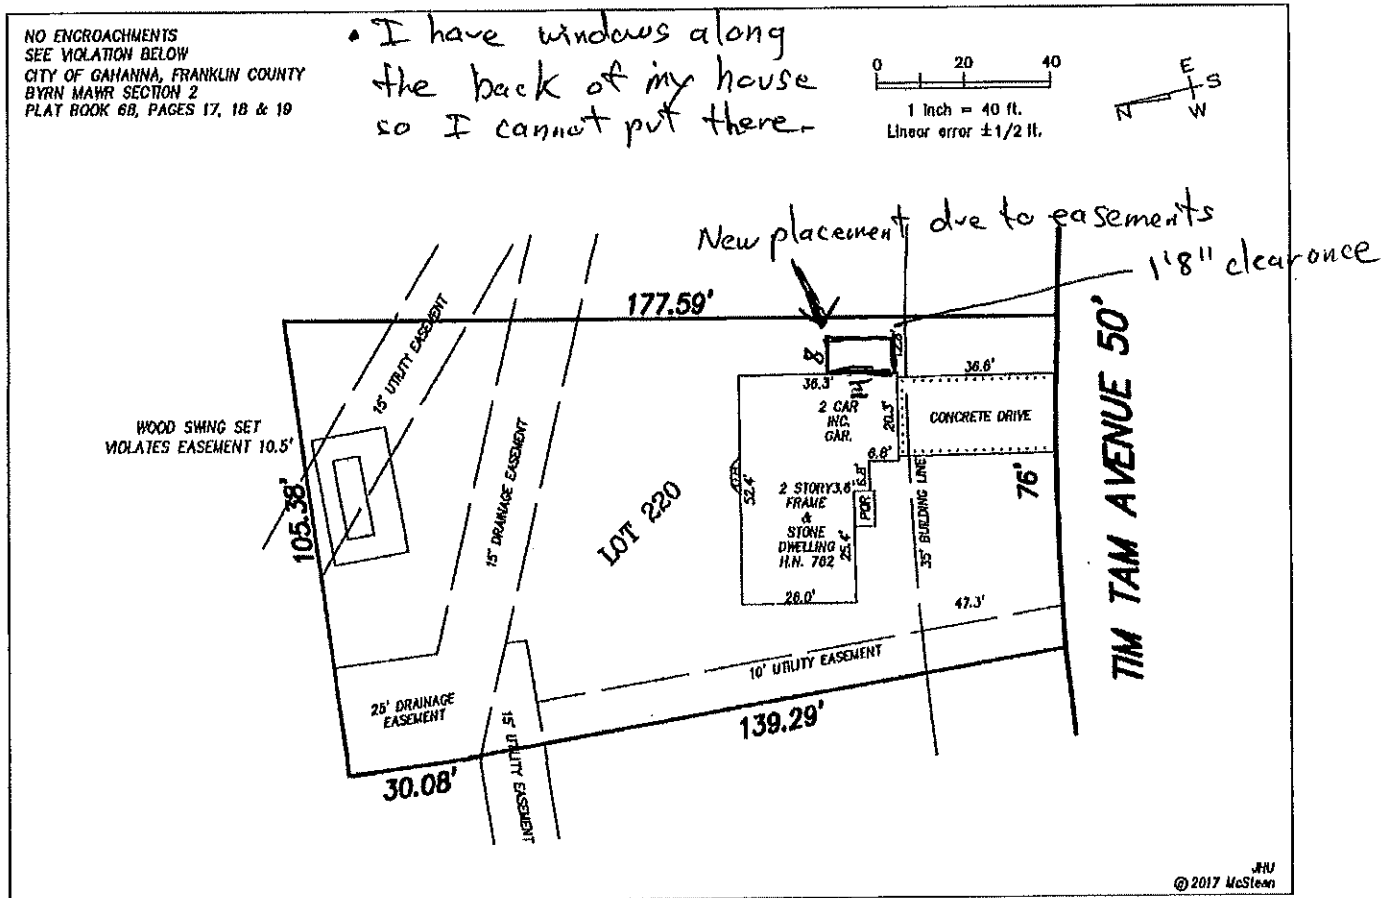 NO ENCROACHMENTS
SEE VIOLATION BELOW
CITY OF GAHANNA, FRANKLIN COUNTY
BYRN MAWR SECTION 2
PLAT BOOK 68, PAGES 17, 18 & 19
• I have windows along
the back of my house
so I cannot put there.
0 20 40
1 Inch = 40 ft.
Linear error ±1/2 ft.
E
S
N
W
New placement due to easements
1'8" clearance
177.59'
15' UTILITY EASEMENT
8
36.3'
36.6'
2 CAR
INC.
GAR.
20.3'
CONCRETE DRIVE
WOOD SWING SET
VIOLATES EASEMENT 10.5'
105.38'
15' DRAINAGE EASEMENT
LOT 220
6.8'
6.8'
52.4'
2 STORY 3.6'
FRAME
&
STONE
DWELLING
H.N. 762
POR
25.4'
35' BUILDING LINE
76'
TIM TAM AVENUE 50'
26.0'
47.3'
10' UTILITY EASEMENT
25' DRAINAGE
EASEMENT
15' UTILITY EASEMENT
139.29'
30.08'
JHU
© 2017 McSteen